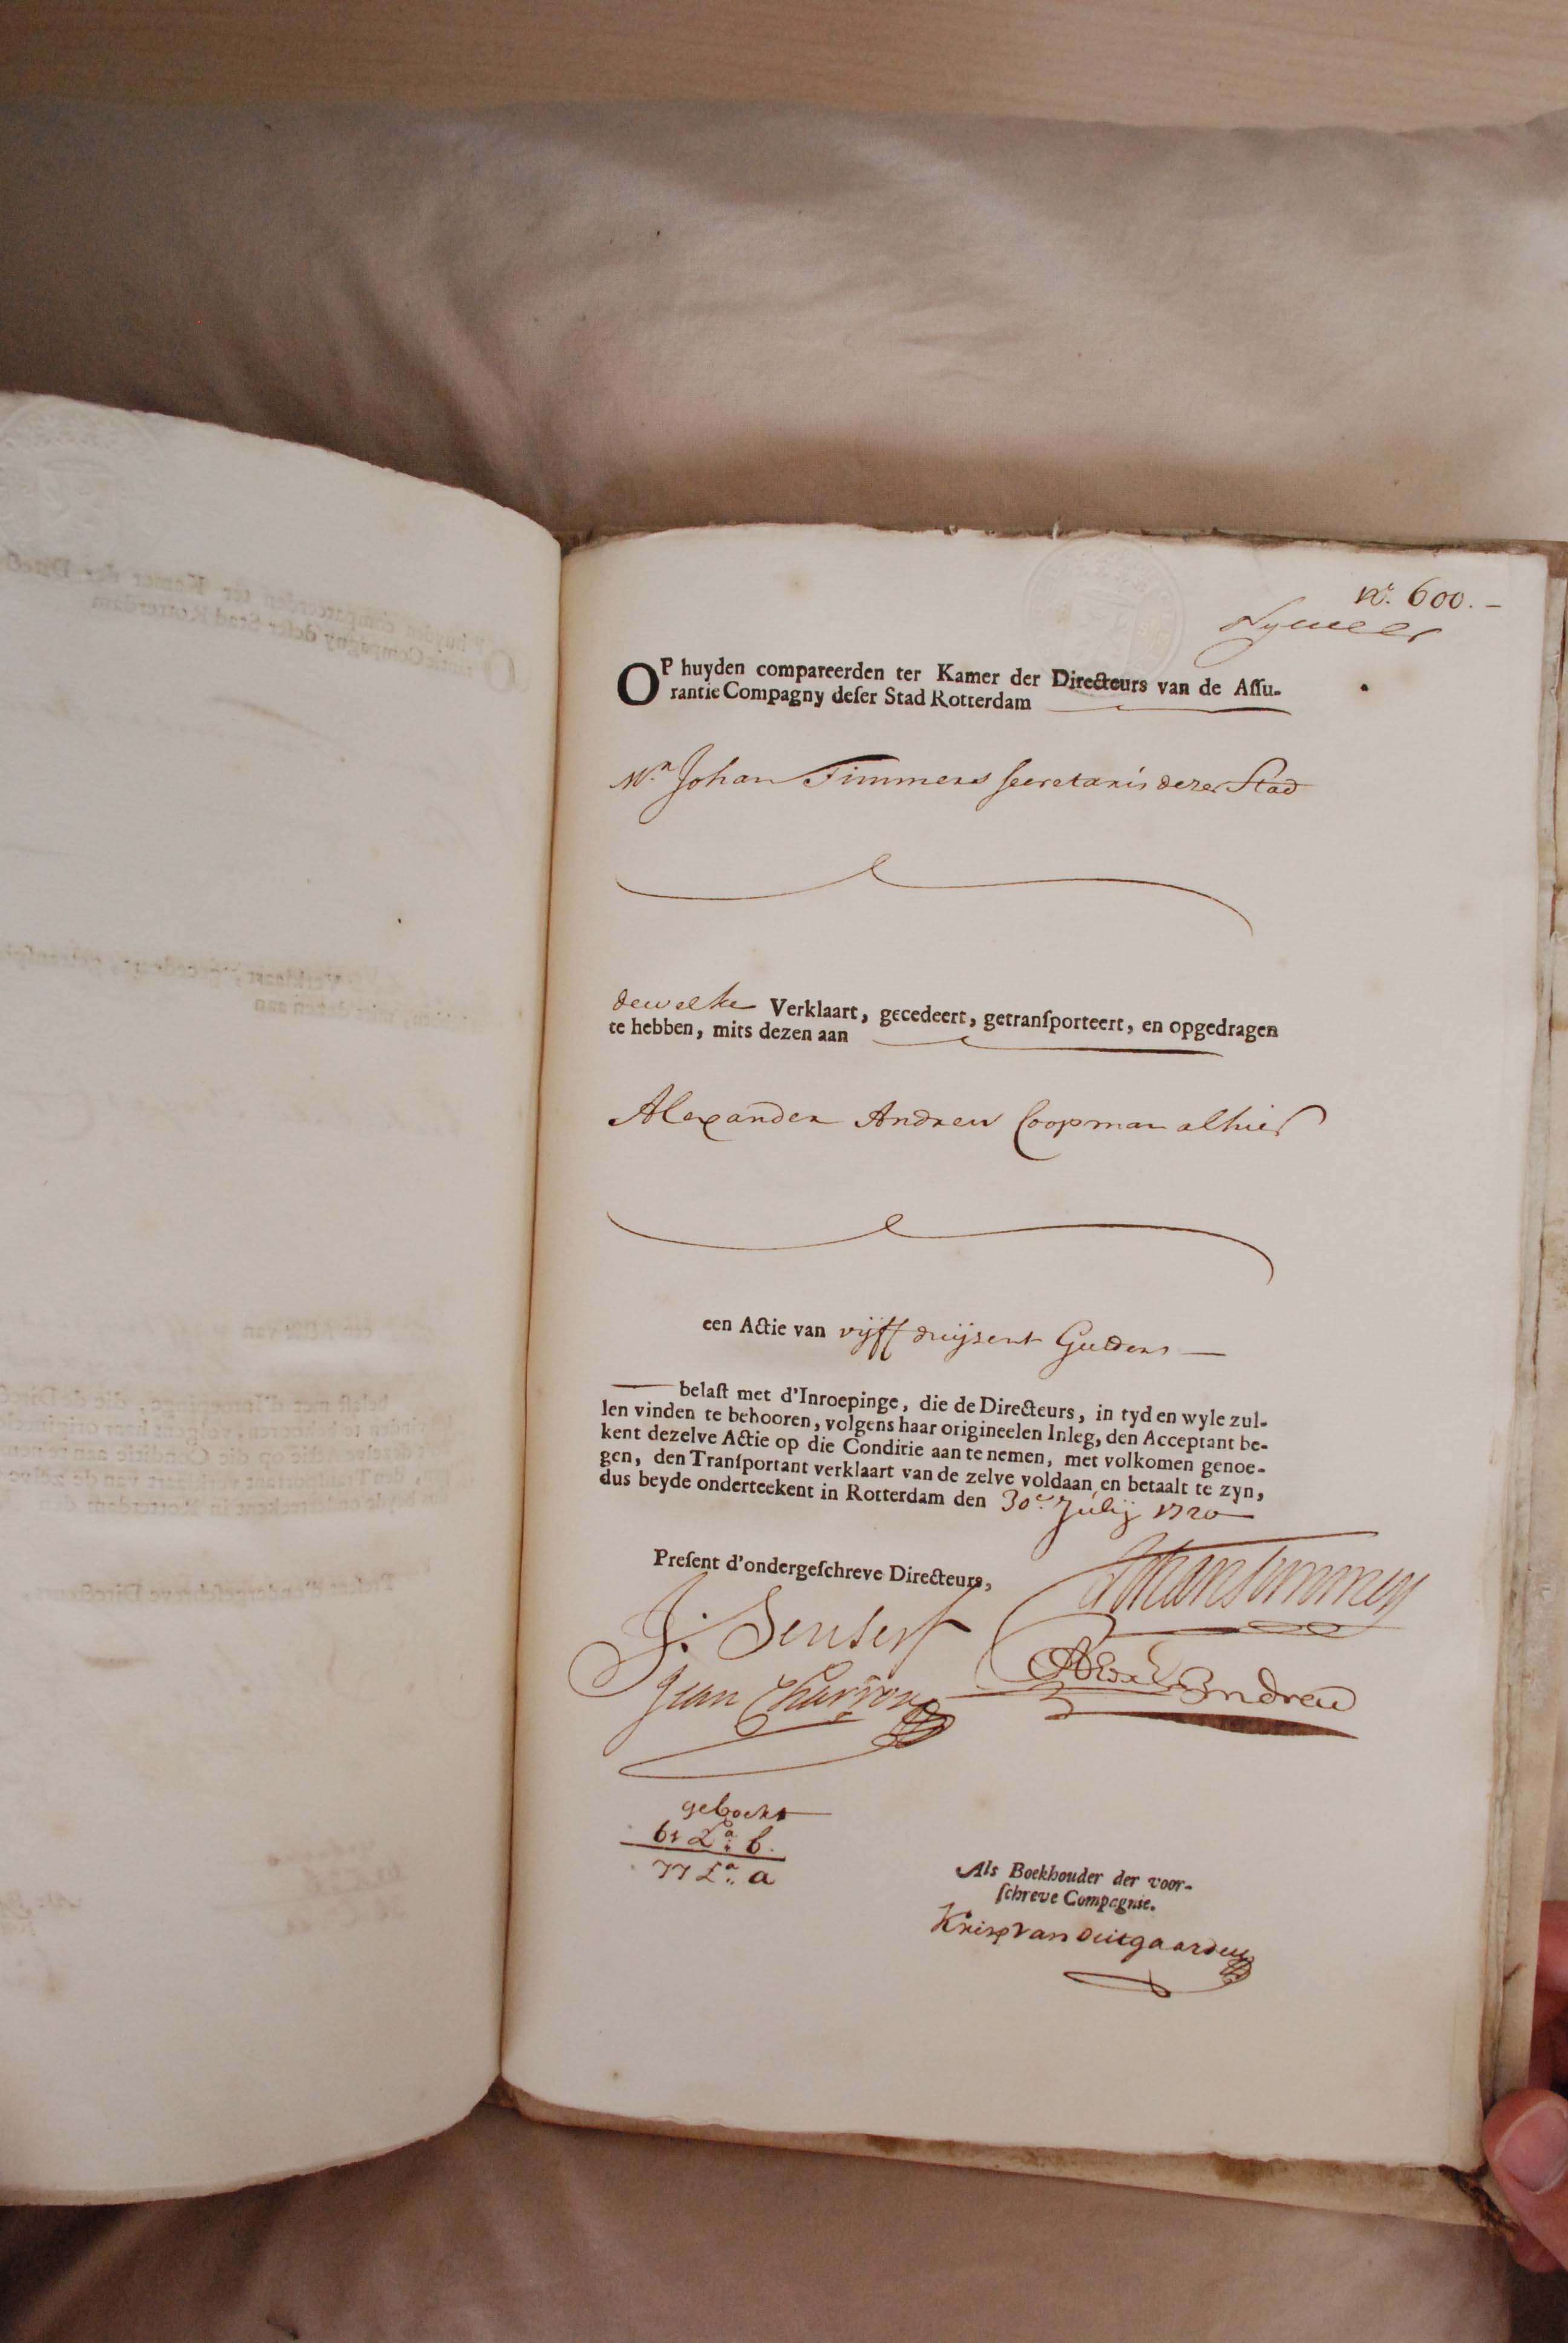 No. 600.-
OP huyden compareerden ter Kamer der Directeurs van de Aſſu-
rantie Compagny deſer Stad Rotterdam
Mr. Johan Timmers secretaris dezer Stad
dewelke Verklaart, gecedeert, getranſporteert, en opgedragen
te hebben, mits dezen aan
Alexander Andrew Coopman alhier
een Actie van vijff duijsent Guldens
belaſt met d'Inroepinge, die de Directeurs, in tyd en wyle zul-
len vinden te behooren, volgens haar origineelen Inleg, den Acceptant be-
kent dezelve Actie op die Conditie aan te nemen, met volkomen genoe-
gen, den Tranſportant verklaart van de zelve voldaan en betaalt te zyn,
dus beyde onderteekent in Rotterdam den 30e Julij 1720
Preſent d'ondergeſchreve Directeurs,
Johan Timmers
J: Senserf
Alexr Andrew
Jean Charron
geboekt
61 La. b.
77 La. a
Als Boekhouder der voor-
ſchreve Compagnie.